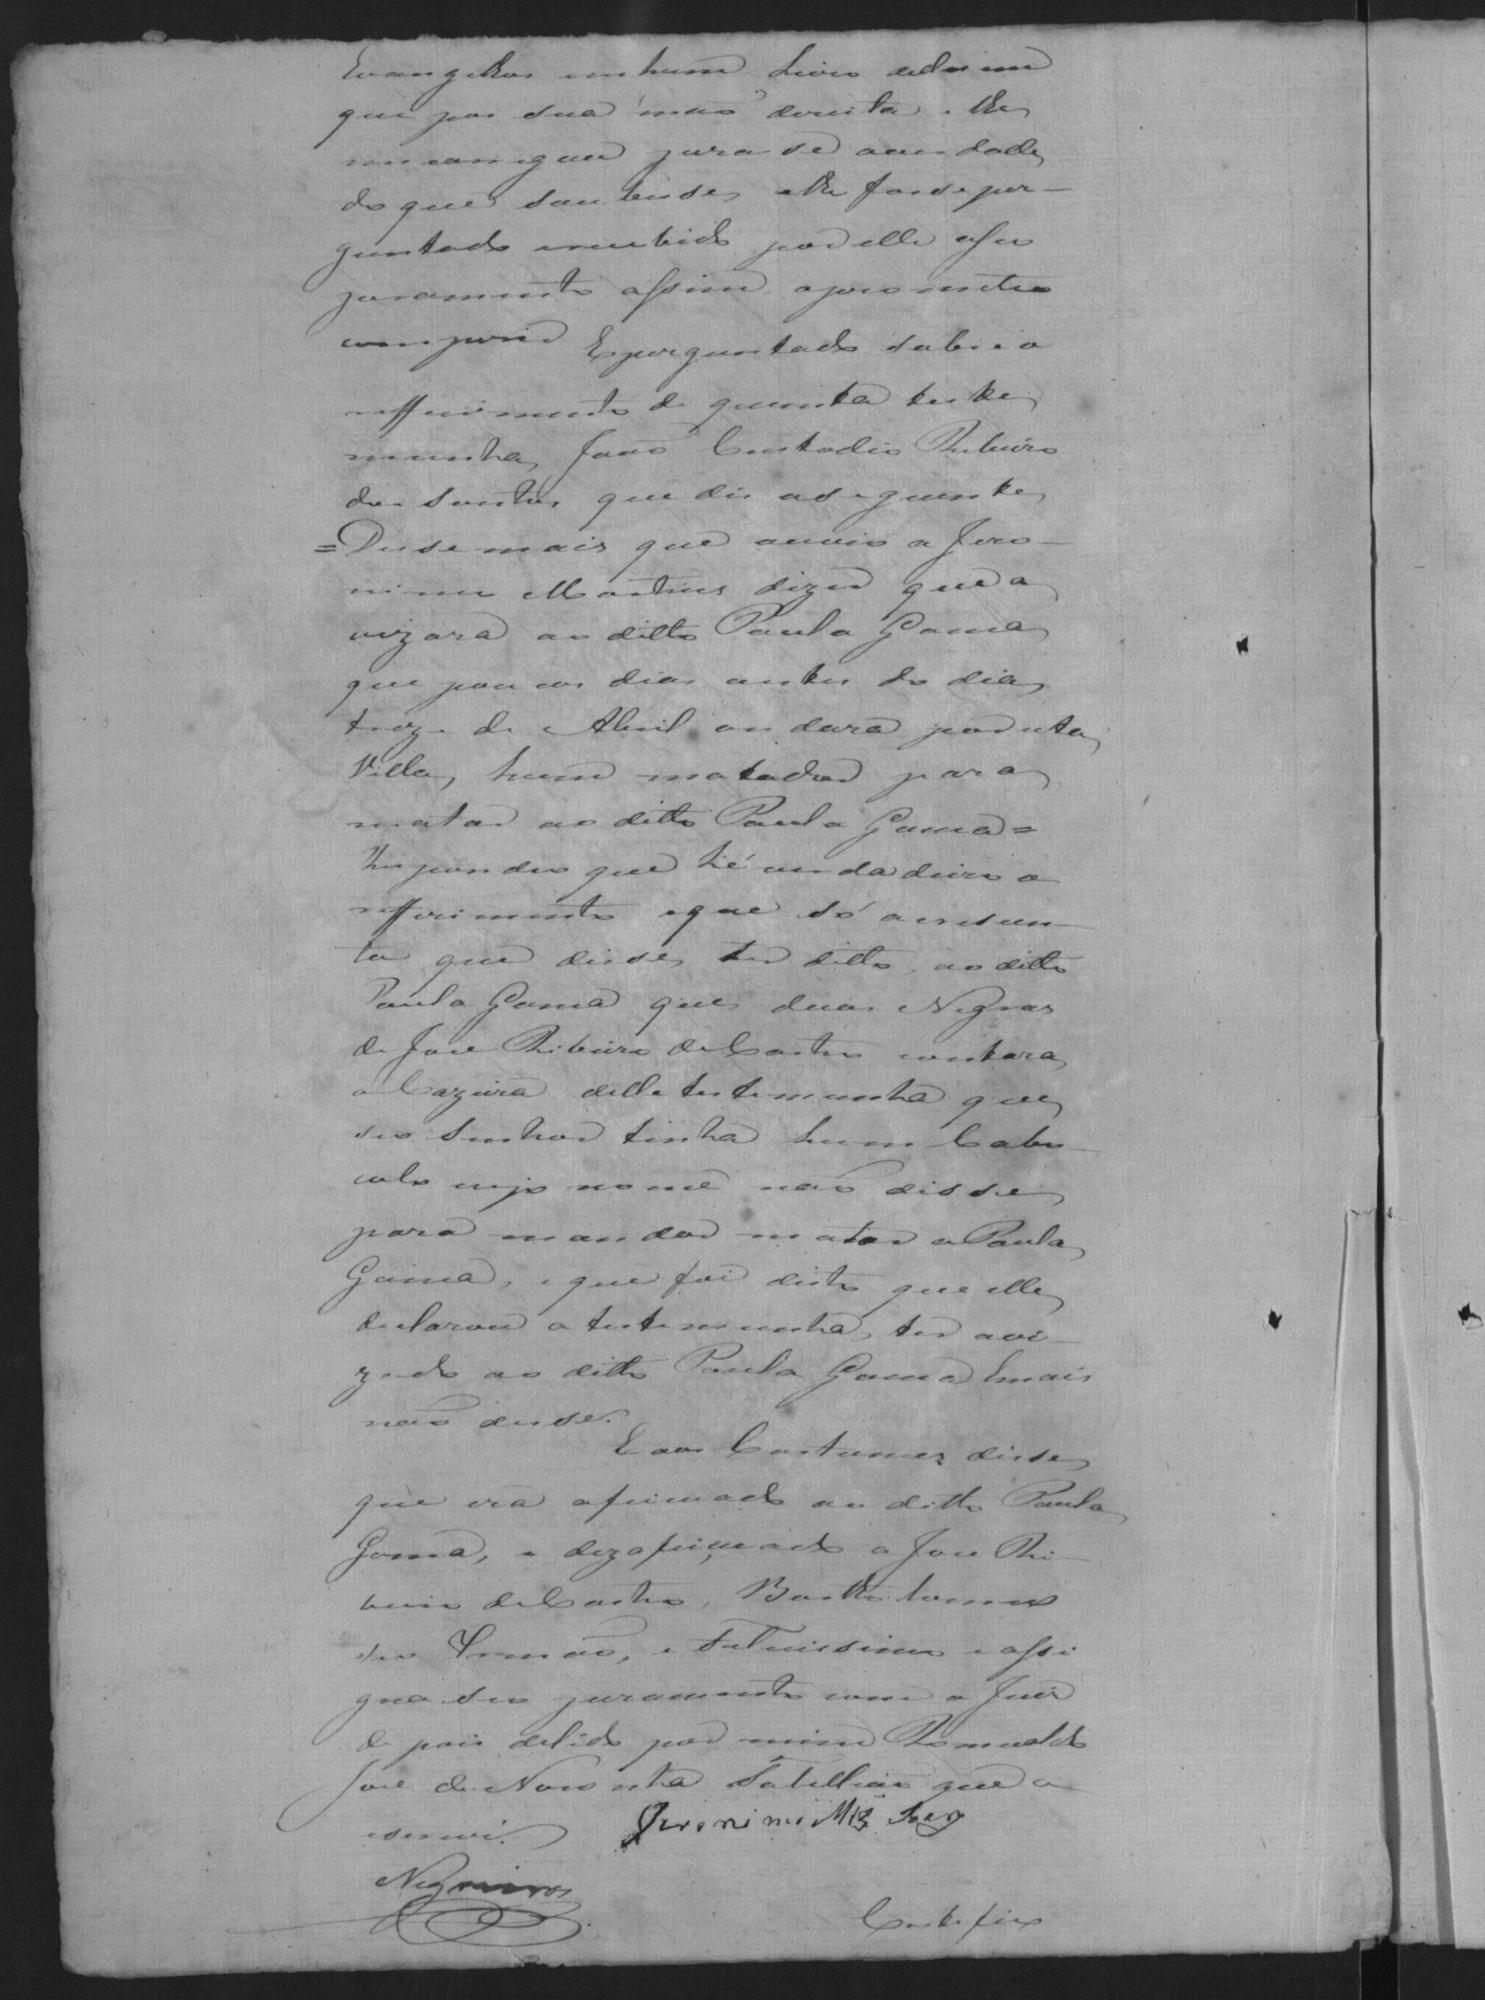 Evangelhos em hum Livro delles em
que pos sua mão direita e lhe
encarregou jurase averdade
do que soubese, e lhe fose per-
guntado erecebido por elle o seu
juramento assim oprometeo
comprir E perguntado sobre o
refferimento da quinta teste
munha, João Custodio Ribeiro
dos Santos, que diz oseguinte
= Disse mais que ouvio a Jero-
nimo Martins dizer que a
vizara ao ditto Paula Gama
que poucos dias antes do dia
treze de Abril andara por esta
Villa, hum matador para
matar ao ditto Paula Gama =
Respondeo que hé verdadeiro o
refferimento eque só acresen-
ta que disse ter ditto ao ditto
Paula Gama que duas Negras
de Jose Ribeiro deCastro contara
a Cazeira delle testemunha que
seo Senhor tinha hum Cabo-
colo cujo nome não disse
para mandar matar a Paula
Gama, e que foi disto que elle
declarou a testemunha, ter avi-
zado ao ditto Paula Gama Emais
não disse.
E aos Costumes disse
que era afeiçoado ao ditto Paula
Gama, e dezafeiçoado a Jose Ri-
beiro deCastro, Bartholomeu
seo Irmão, e e assi
gna seo juramento com o Juiz
depois delido por mim Romualdo
Jose de Noronha Tabellião que o
escrevi.
Jeronimo Miz
Negreiros
Certefico